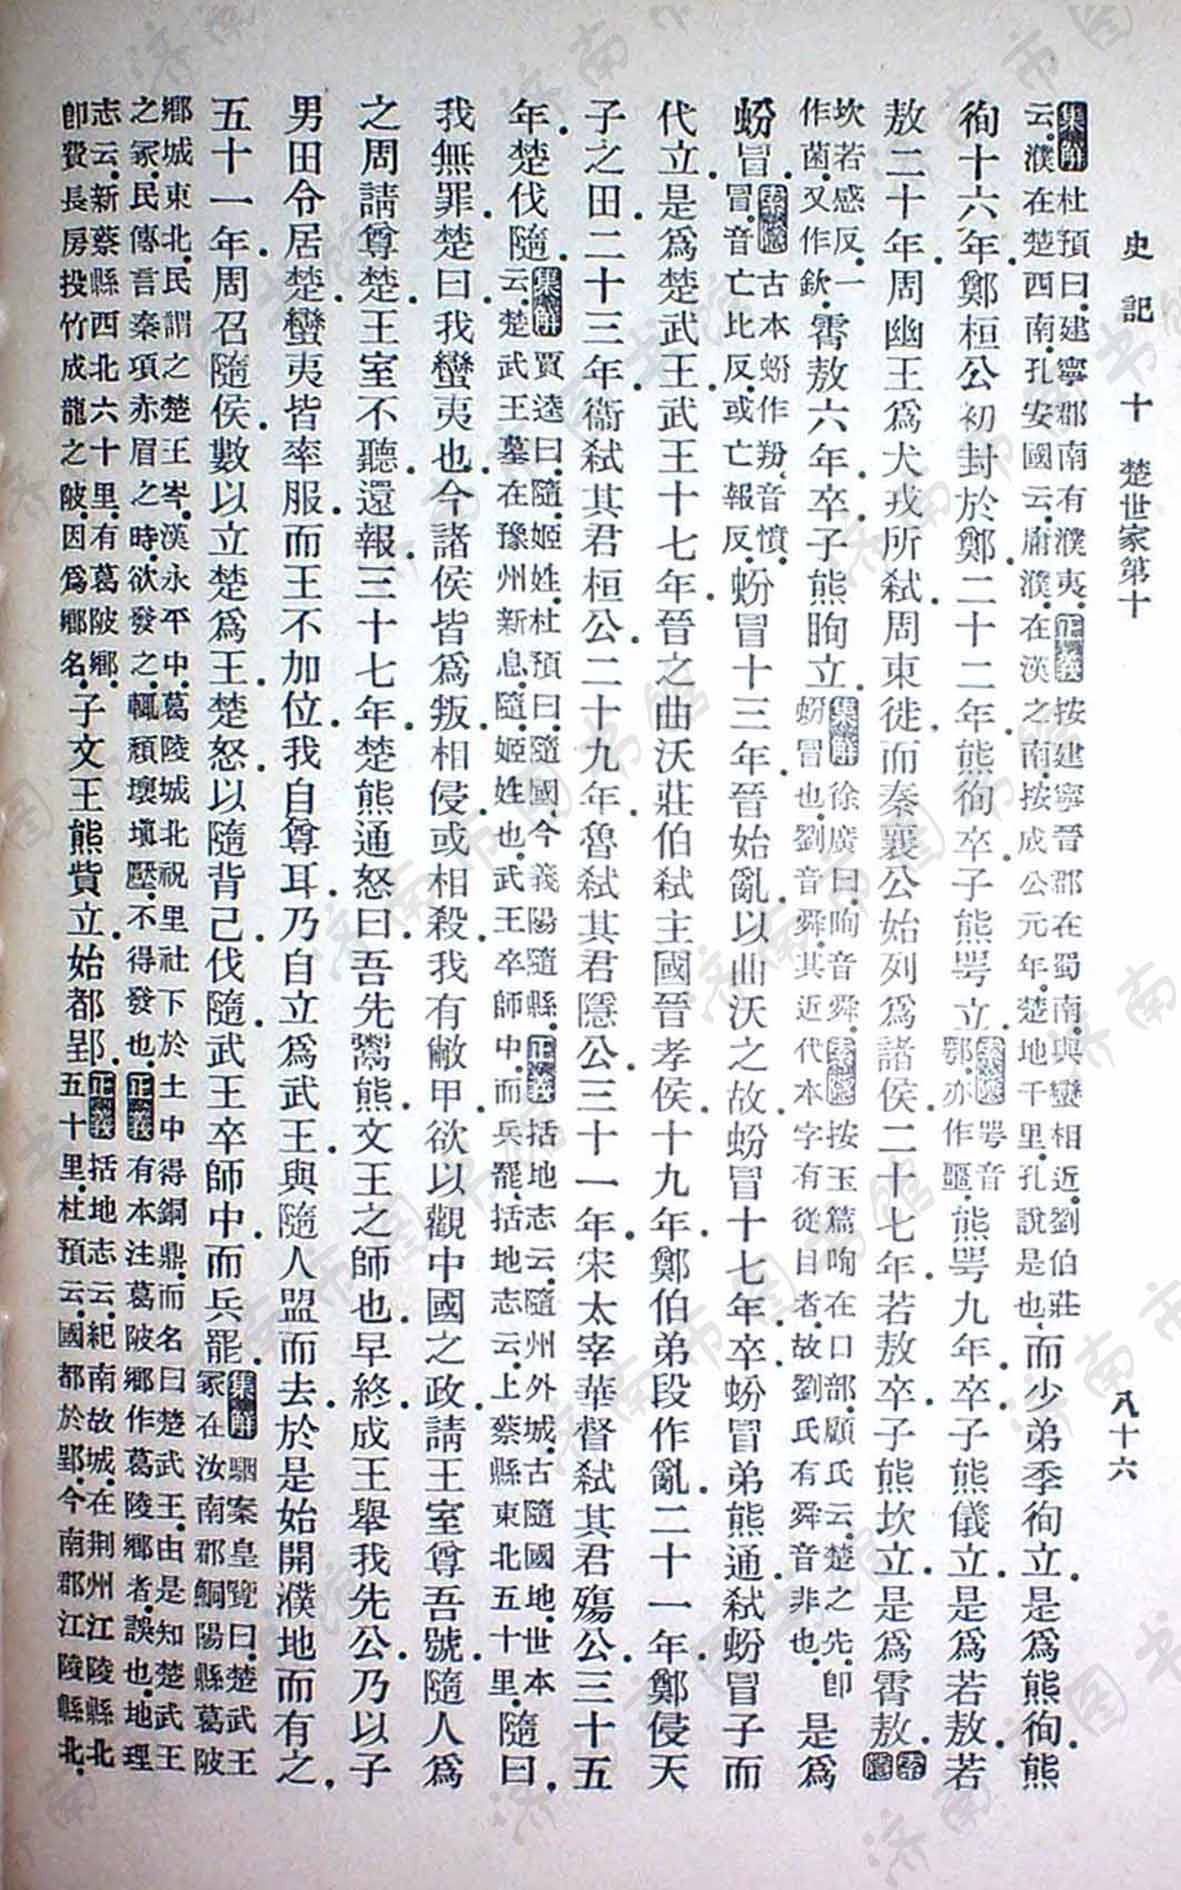 史記 十 楚世家第十 八十六
集解杜預曰。建寧郡南有濮夷。正義按建寧晉郡在蜀南。與蠻相近。劉伯莊云。濮在楚西南。孔安國云。庸濮在漢之南。按成公元年。楚地千里。孔說是也。而少弟季徇立。是爲熊徇。熊
徇十六年。鄭桓公初封於鄭。二十二年。熊徇卒。子熊咢立。索隱咢音鄂。亦作噩。熊咢九年。卒。子熊儀立。是爲若敖。若
敖二十年。周幽王爲犬戎所弒。周東徙。而秦襄公始列爲諸侯。二十七年。若敖卒。子熊坎立。是爲霄敖。索隱
坎若感反。一作菌。又作欽。霄敖六年。卒。子熊眴立。集解徐廣曰。眴音舜。索隱按玉篇眴在口部。顧氏云。楚之先。即蚡冒也。劉音舜。其近代本字有從目者。故劉氏有舜音。非也。是爲
蚡冒。索隱古本蚡作羒。音憤。冒。音亡比反。或亡報反。蚡冒十三年。晉始亂。以曲沃之故。蚡冒十七年。卒。蚡冒弟熊通。弒蚡冒子而
代立。是爲楚武王。武王十七年。晉之曲沃莊伯弒主國晉孝侯。十九年。鄭伯弟段作亂。二十一年。鄭侵天
子之田。二十三年。衞弒其君桓公。二十九年。魯弒其君隱公。三十一年。宋太宰華督弒其君殤公。三十五
年。楚伐隨。集解賈逵曰。隨。姬姓。杜預曰。隨國。今義陽隨縣。正義括地志云。隨州外城。古隨國地。世本云。楚武王墓在豫州新息。隨。姬姓也。武王卒師中。而兵罷。括地志云。上蔡縣東北五十里。隨曰。
我無罪。楚曰。我蠻夷也。今諸侯皆爲叛。相侵。或相殺。我有敝甲。欲以觀中國之政。請王室尊吾號。隨人爲
之周。請尊楚。王室不聽。還報。三十七年。楚熊通怒曰。吾先鬻熊。文王之師也。早終。成王舉我先公。乃以子
男田令居楚。蠻夷皆率服。而王不加位。我自尊耳。乃自立爲武王。與隨人盟而去。於是始開濮地而有之。
五十一年。周召隨侯。數以立楚爲王。楚怒。以隨背己。伐隨。武王卒師中。而兵罷。集解駰案皇覽曰。楚武王冢在汝南郡鮦陽縣葛陂
鄉城東北。民謂之楚王岑。漢永平中。葛陵城北祝里社下於土中得銅鼎。而名曰楚武王。由是知楚武王
之冢。民傳言秦項赤眉之時。欲發之。輒頹壞塡壓。不得發也。正義有本注葛陂鄉作葛陵鄉者。誤也。地理
志云。新蔡縣西北六十里。有葛陂鄉。即費長房投竹成龍之陂。因爲鄉名。子文王熊貲立。始都郢。正義括地志云。紀南故城。在荊州江陵縣北五十里。杜預云。國都於郢。今南郡江陵縣北。
济南市图书馆